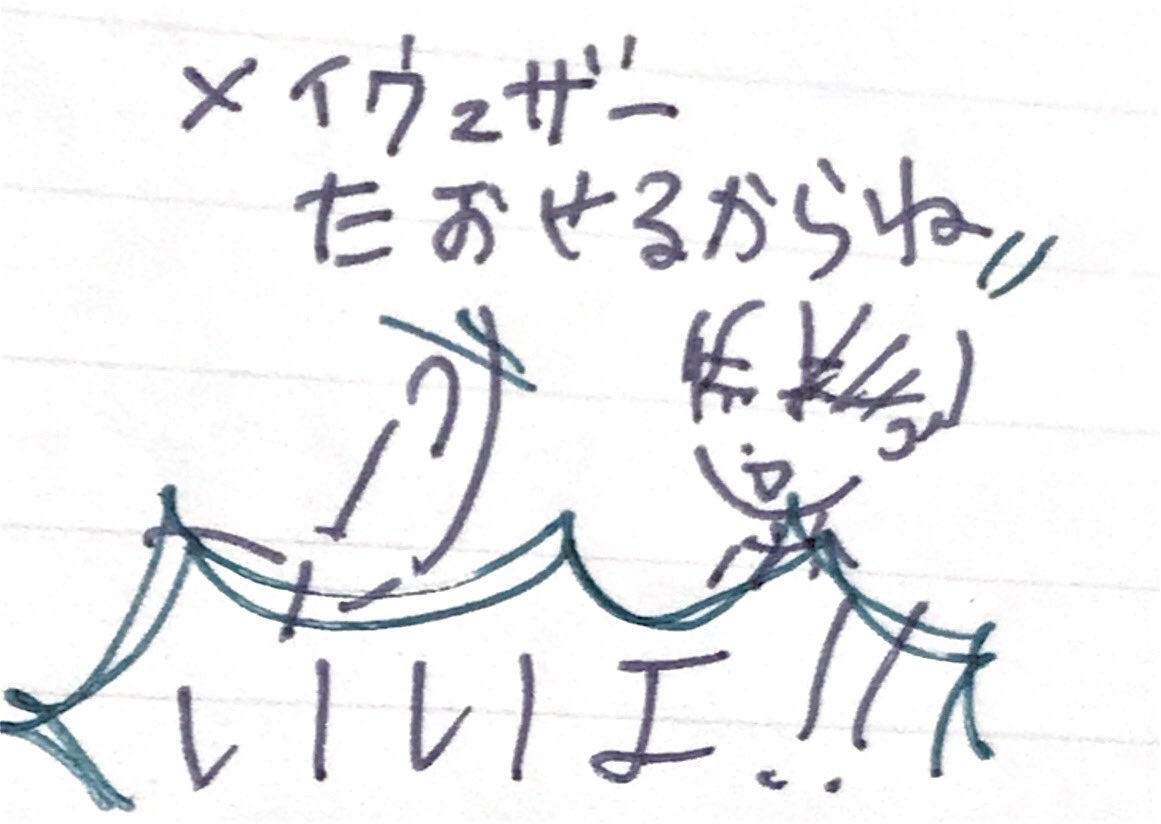 メイウェザー
たおせるからね"
いいよ!!